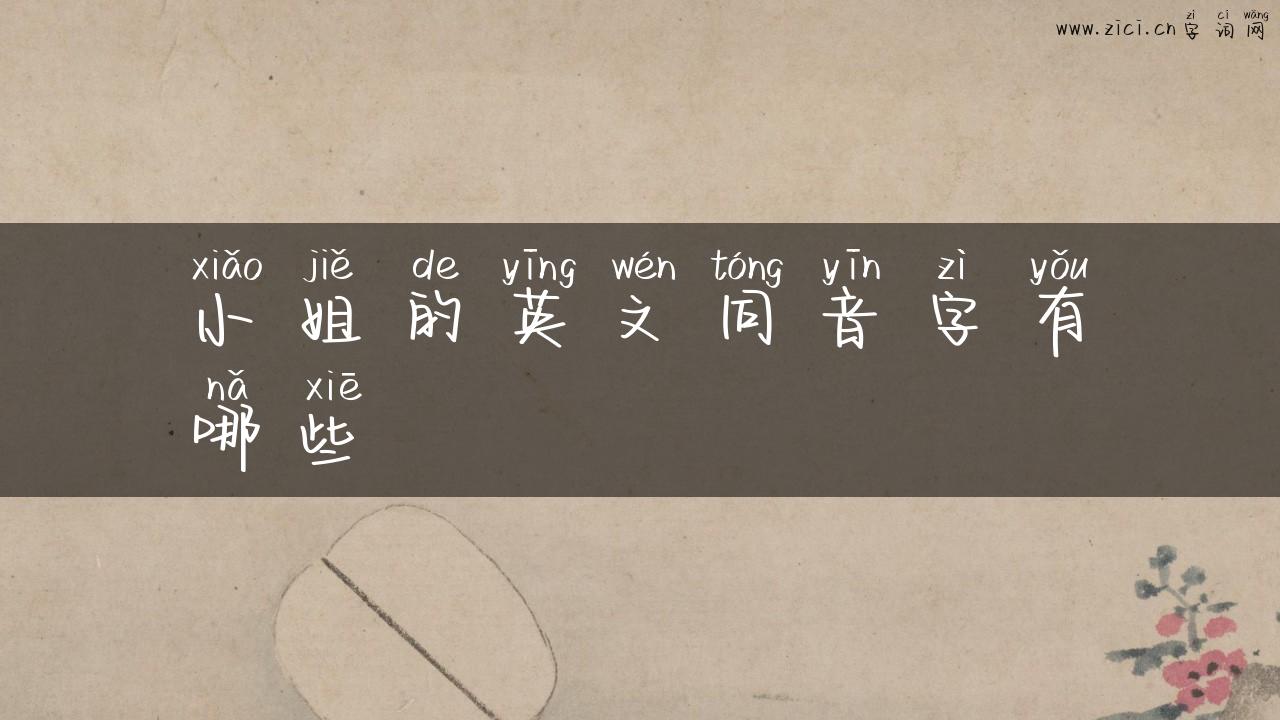 zì cí wǎng
www.zici.cn 字词网
xiǎo jiě de yīng wén tóng yīn zì yǒu
小姐的英文同音字有
nǎ xiē
哪些